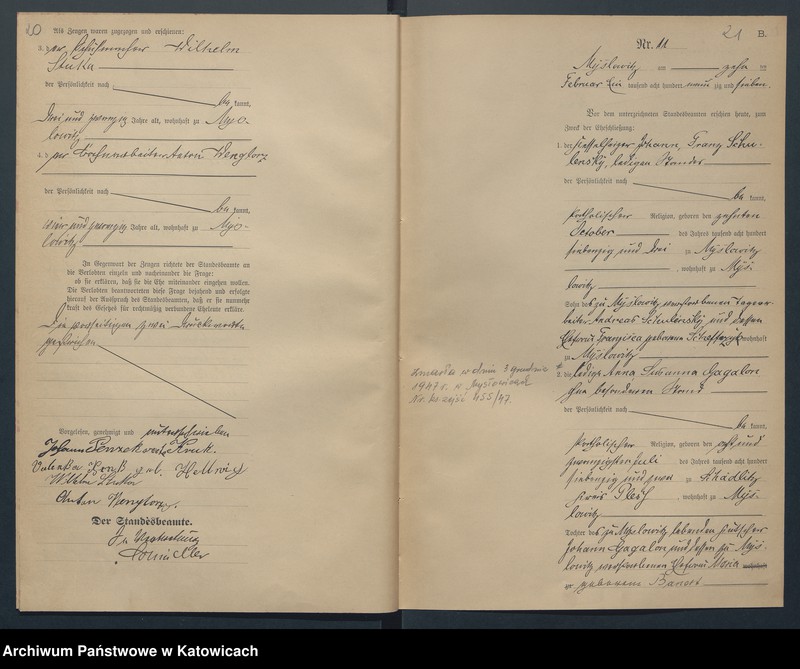 20
Als Zeugen waren zugezogen und erschienen:
3. der Schuhmacher Wilhelm
Stuka
der Persönlichkeit nach
be kannt,
drei und zwanzig Jahre alt, wohnhaft zu Mys-
lowitz
4. der Bahnarbeiter Anton Wenglorz
der Persönlichkeit nach
be kannt,
vier und zwanzig Jahre alt, wohnhaft zu Mys-
lowitz
In Gegenwart der Zeugen richtete der Standesbeamte an
die Verlobten einzeln und nacheinander die Frage:
ob sie erklären, daß sie die Ehe miteinander eingehen wollen.
Die Verlobten beantworteten diese Frage bejahend und erfolgte
hierauf der Ausspruch des Standesbeamten, daß er sie nunmehr
kraft des Gesetzes für rechtmäßig verbundene Eheleute erkläre.
Die vorseitigen zwei Druckworte
gestrichen
Vorgelesen, genehmigt und unterschrieben
Johann
geb. Hellwig
Wilhelm Stuka
Anton Wenglorz.
Der Standesbeamte.
In Vertretung
21
B.
Nr. 11
Myslowitz am zehn ten
Februar ein tausend acht hundert neun zig und sieben.
Vor dem unterzeichneten Standesbeamten erschien heute, zum
Zweck der Eheschließung:
1. der Kesselheizer Johann, Franz Schu-
lensky, ledigen Standes
der Persönlichkeit nach
be kannt,
katholischer Religion, geboren den zehnten
October des Jahres tausend acht hundert
siebenzig und drei zu Myslowitz
, wohnhaft zu Mys-
lowitz
Sohn des zu Myslowitz verstorbenen Tagear-
beiter Andreas Schulensky und dessen
Ehefrau Franzisca geborenen wohnhaft
zu Myslowitz
2. die ledige Anna Susanna Gagalon
ohne besonderen Stand
der Persönlichkeit nach
be kannt,
katholischer Religion, geboren den acht und
zwanzigsten Juli des Jahres tausend acht hundert
siebenzig und zwei zu
Kreis Pleß , wohnhaft zu Mys-
lowitz
Tochter des zu Myslowitz lebenden
Johann Gagalon und dessen zu Mys-
lowitz verstorbenen Ehefrau Maria wohnhaft
zu geborenen
zmarła w dniu 3 grudnia
1947 r. w Mysłowicach
Nr. ks. zejść 455/47.
Archiwum Państwowe w Katowicach